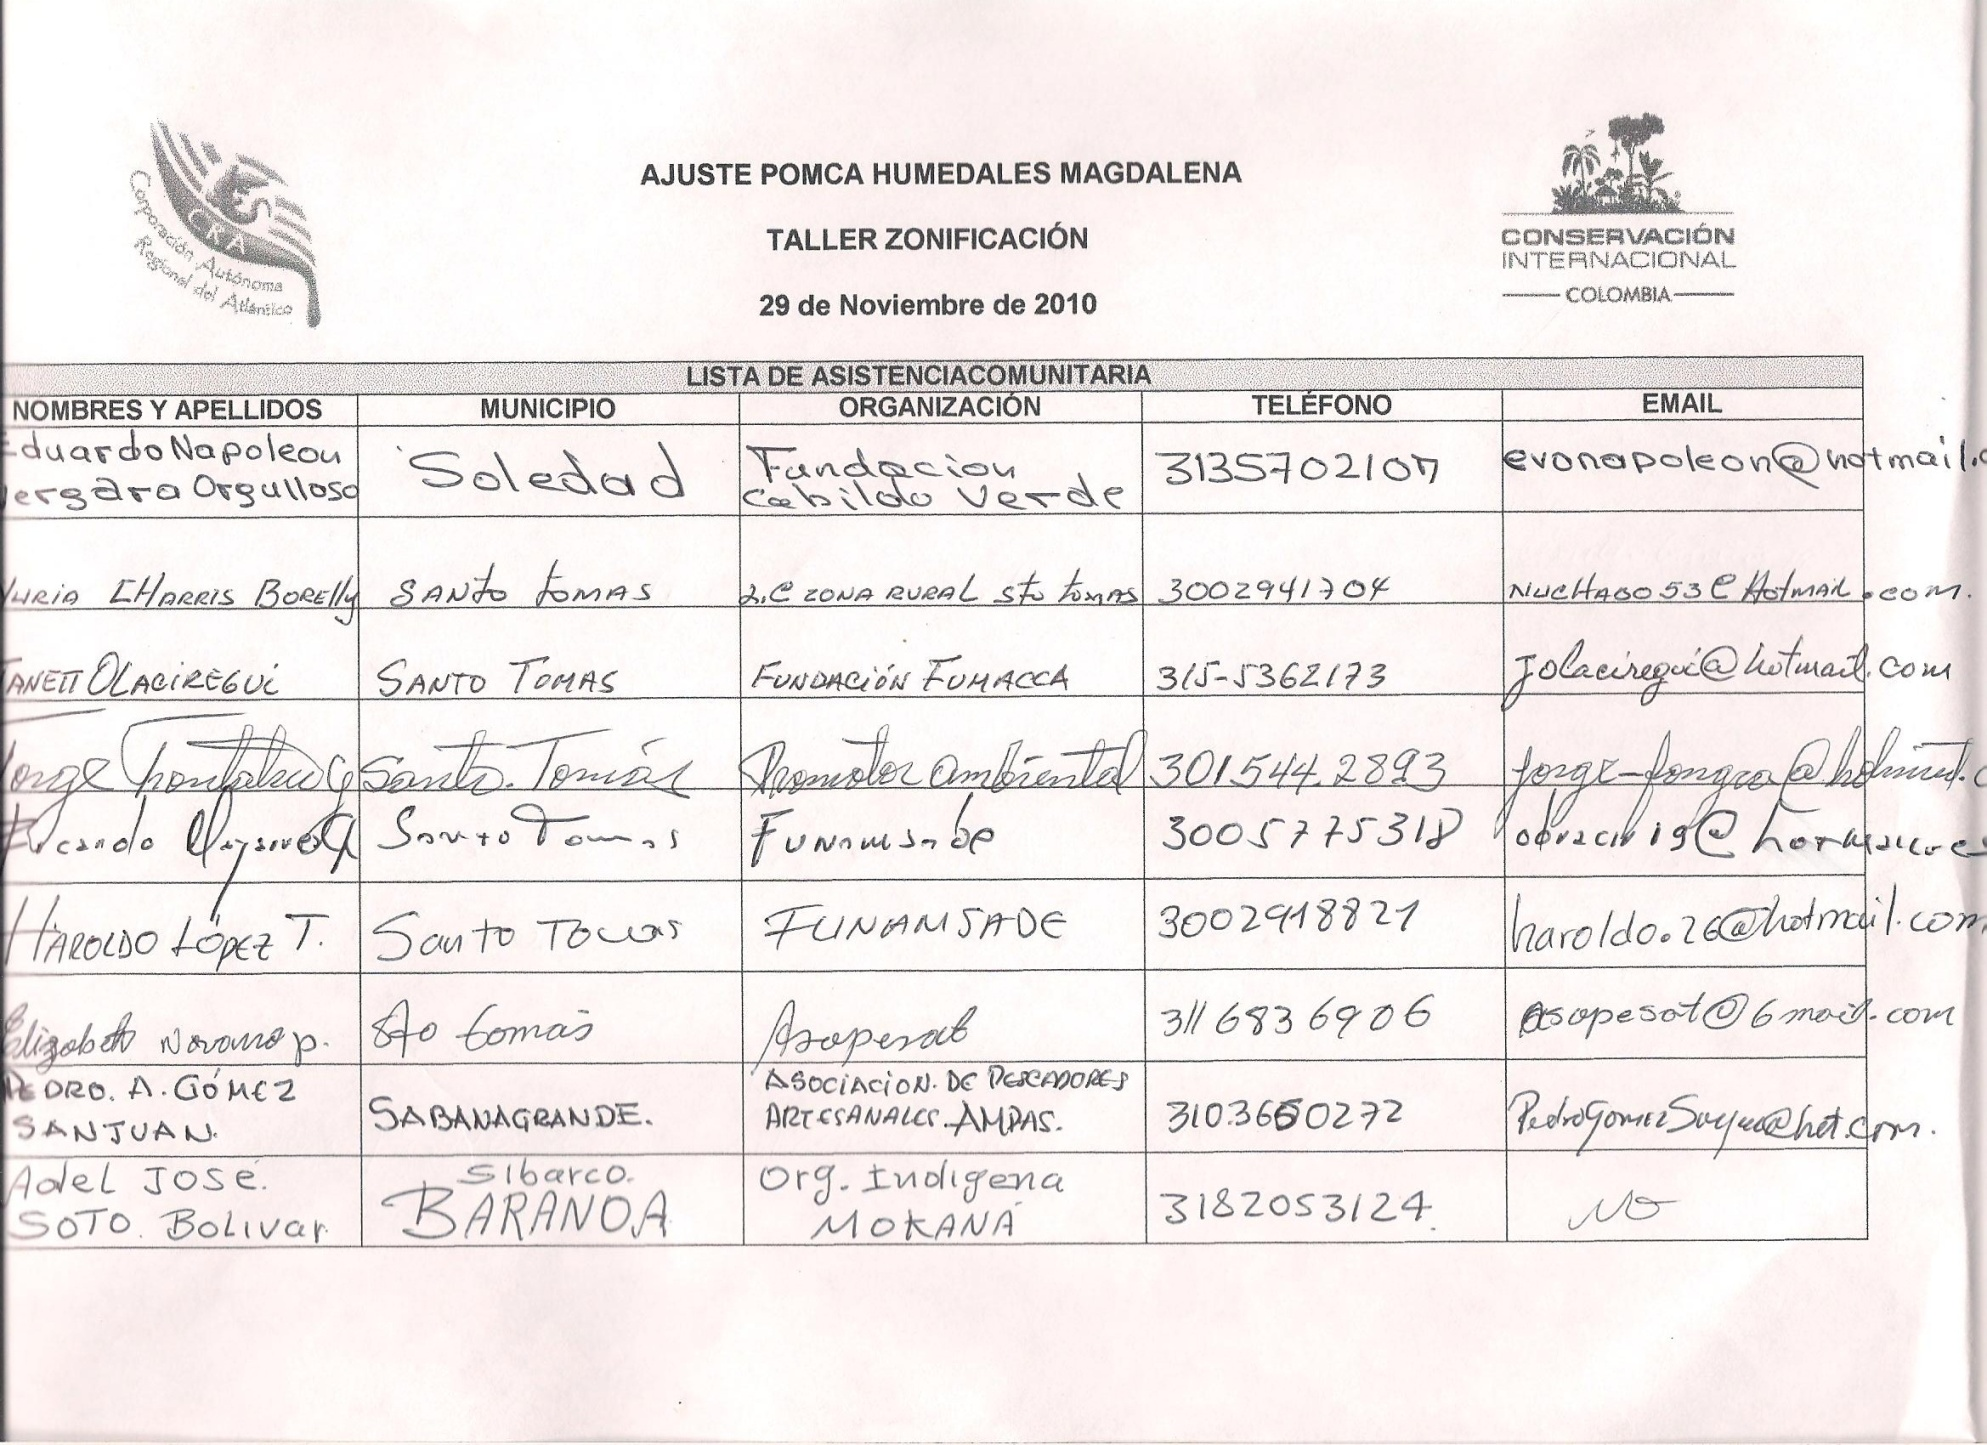 CRA
Corporación Autónoma
Regional del Atlántico
AJUSTE POMCA HUMEDALES MAGDALENA
TALLER ZONIFICACIÓN
29 de Noviembre de 2010
CONSERVACIÓN
INTERNACIONAL
COLOMBIA
LISTA DE ASISTENCIACOMUNITARIA
NOMBRES Y APELLIDOS MUNICIPIO ORGANIZACIÓN TELÉFONO EMAIL
Eduardo Napoleon
Vergara Orgulloso
Soledad
Fundacion
Cabildo Verde
evonapoleon@hotmail.c
CHARRIS BORElly SANTO TOMAS ZONA RURAL Sto tomas 3002941704
HOTMAIL.com.
OLACIREGUI SANTO TOMAS FUNDACIÓN FUMACCA 315-5362173 Jolaciregui@hotmail.com
Jorge Santo. Tomás Promotor ambiental 301544.2893
Santo Tomas 3005775318
HAROLDO LÓPEZ T. Santo Tomas FUNAMSADE 3002918821 haroldo.26@hotmail.com
Elizabeth Navarro p. Sto tomas Asopesat 3116836906 asopesat@Gmail.com
PEDRO. A. GÓMEZ
SANJUAN.
SABANAGRANDE.
ASOCIACION. DE PESCADORES
ARTESANALES. AMPAS.
3103650272
Adel JOSÉ.
SOTO. Bolivar.
Sibarco.
BARANOA
Org. Indigena
MOKANÁ
3182053124.
NO